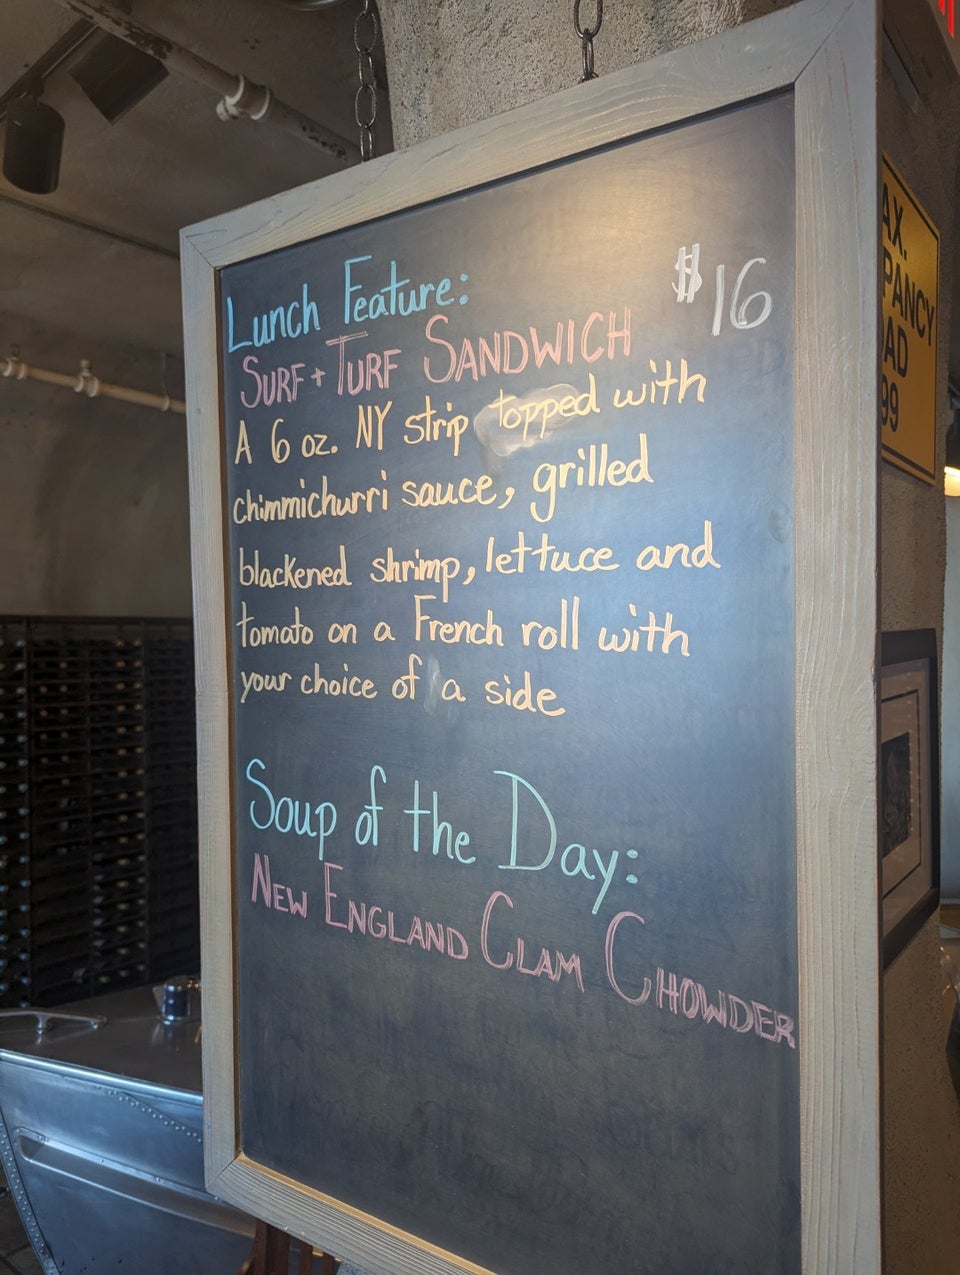 Lunch Feature: $16
SURF + TURF SANDWICH
A 6 oz. NY strip topped with
chimmichurri sauce, grilled
blackened shrimp, lettuce and
tomato on a French roll with
your choice of a side
Soup of the Day:
NEW ENGLAND CLAM CHOWDER
AX.
PANCY
AD
99